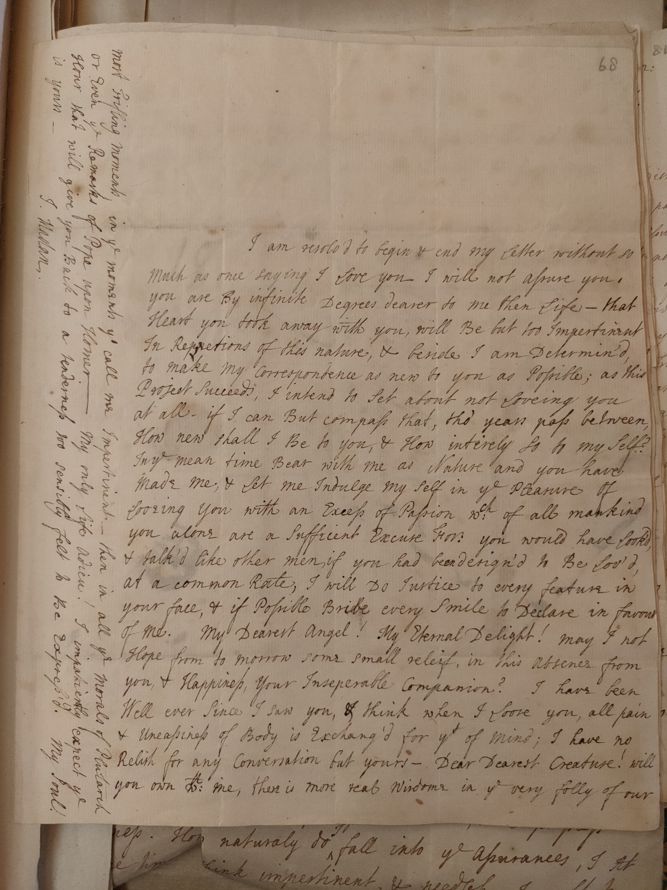 68
I am resolv'd to begin & end my Letter without so
much as once saying I Love you I will not assure you,
you are By infinite Degrees dearer to me then Life – that
Heart you took away with you, will Be but too Impertinent
In Repetions of this nature, & beside I am Determin'd,
to make my Correspondence as new to you as Possible; as this
Project Succeeds, I intend to set about not Loveing you
at all. if I can But compass that, tho' years pass between,
How new shall I Be to you, & How intirely so to my Self?
In ye mean time Bear with me as Nature and you have
Made me, & Let me Indulge my self in ye Pleasure of
Loveing You with an Excess of Passion wch of all mankind
you alone are a Sufficient Excuse For: you would have look'd
& talk'd like other men, if you had been design'd to Be Lov'd,
at a common Rate; I will Do Justice to every feature in
your face, & if Possible Bribe every Smile to Declare in favour
of me. My Dearest Angel! My Eternal Delight! may I not
Hope from to morrow some small releif, in this absence from
you & Happiness, Your Inseperable Companion? I have been
Well ever Since I saw you, & think when I Loose you, all pain
& Uneasiness of Body is Exchang'd for yt of Mind; I have no
Relish for any Conversation but yours – Dear Dearest Creature! will
you own to me, there is more real Wisdome in ye very folly of our
most trifling moments in ye moments yt call me Impertinent – then in all ye Morals of Plutarch
or Even ye Remarks of Pope upon Homer — My only Life adieu! I impatiently expect ye
Hour that will give you Back to a tenderness too sensibly felt to Be Express'd My Soul!
is yours –
ess. How naturaly do I fall into ye Assurances, I At
think impertinent & needless